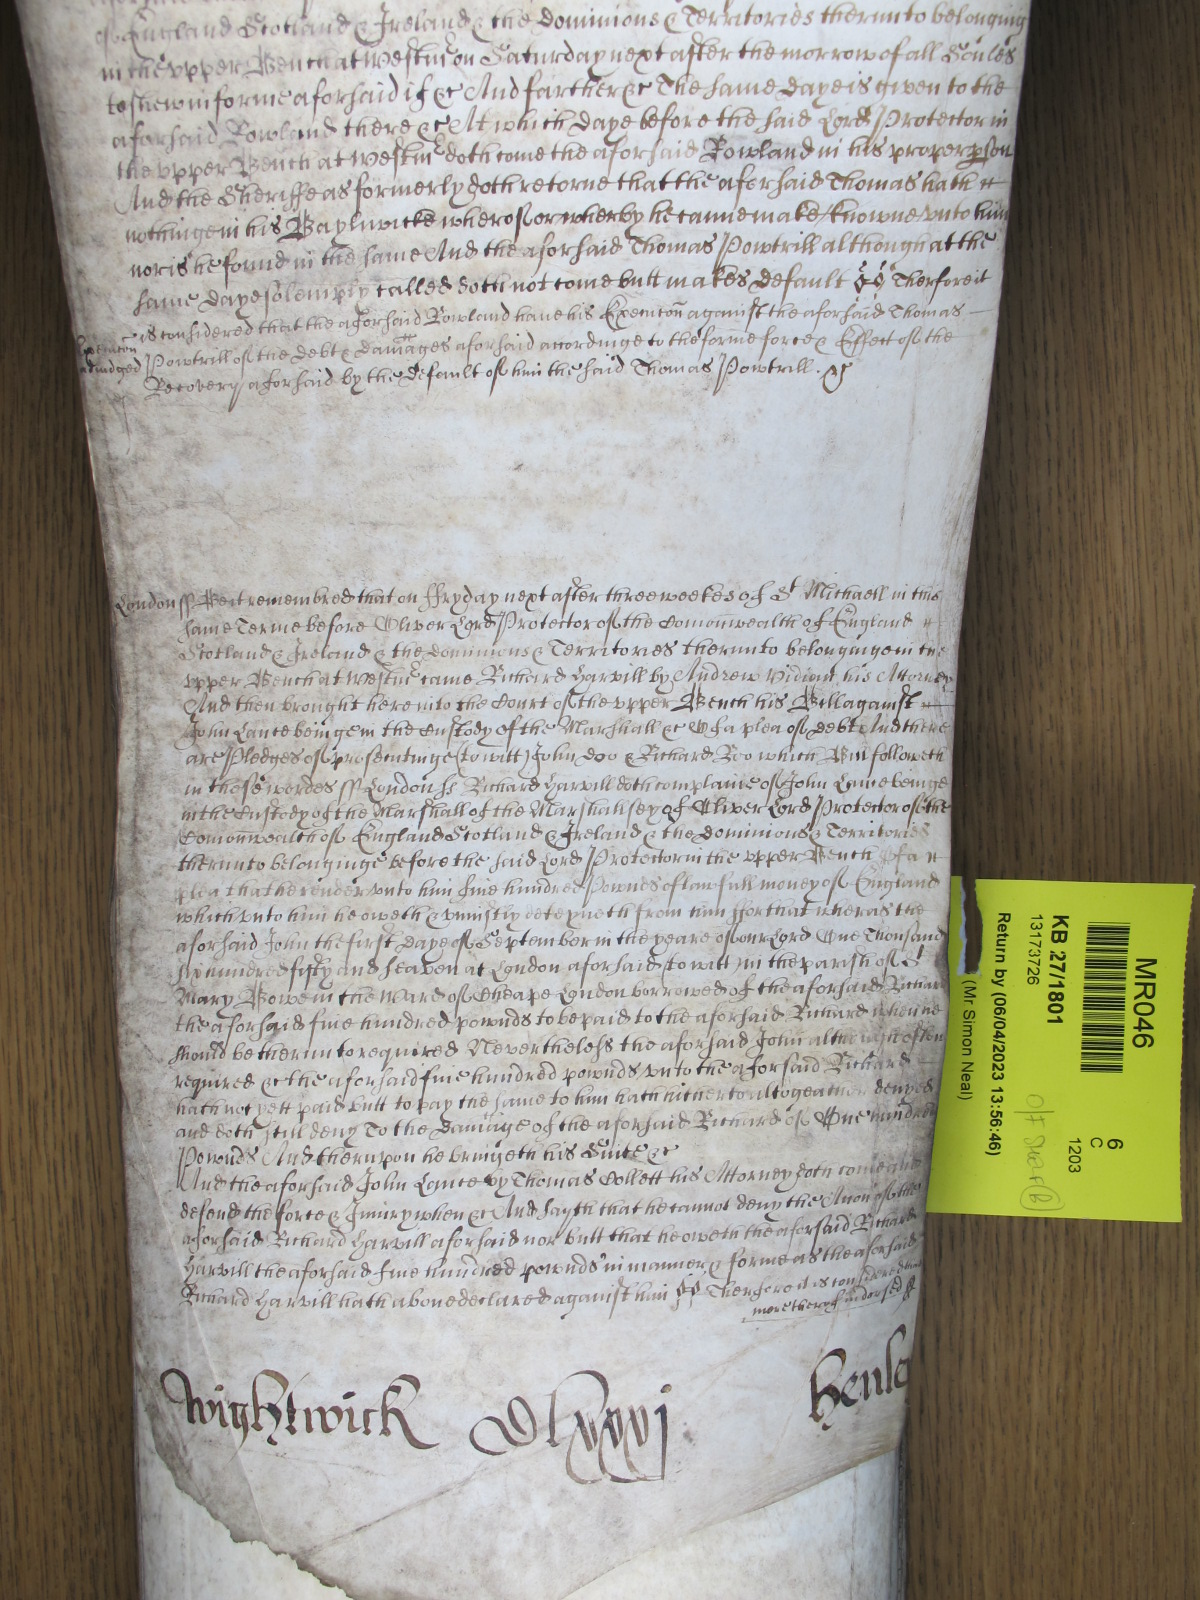 of England Scotland & Ireland & the dominions & Territories therunto belonging
in the upper Bench at Westm on Saturday next after the morrow of all Soules
to shew in forme aforsaid if &c And farther &c The same daye is given to the
aforsaid Rowland there &c At which daye before the said Lord Protector in
the upper Bench at Westm doth come the aforsaid Rowland in his proper pson
And the Sheriffe as formerly doth retorne that the aforsaid Thomas hath
nothinge in his Baylywicke wherof or wherby he canne make knowne unto him
nor is he found in the same And the aforsaid Thomas Powtrill although at the
same daye solemply called doth not come butt makes default Therfore it
is considered that the aforsaid Rowland have his Execucon against the aforsaid Thomas
Execucon adiudged
Powtrill of the debt & damages aforsaid accordinge to the forme force & Effect of the
Recovery aforsaid by the default of him the said Thomas Powtrill.
London ss Bee it remembred that on ffryday next after three weekes of St Michaell in this
same Terme before Oliver Lord Protector of the Comonwealth of England
Scotland & Ireland & the dominions & Territories therunto belonginge in the
upper Bench at Westm came Richard Harvill by Andrew Vidian his Attorney
And then brought here into the Court of the upper Bench his Bill against
John Lance beinge in the Custody of the Marshall &c Of a plea of debt And there
are Pledges of prosecutinge (to witt) John Doo & Richard Roo which Bill followeth
in these wordes ss London ss Richard Harvill doth complaine of John Lance beinge
in the Custody of the Marshall of the Marshallsey of Oliver Lord Protector of the
Comonwealth of England Scotland & Ireland & the dominions & Territories
therunto belonginge before the said Lord Protector in the upper Bench Of a
plea that he render unto him five hundred Pownds of lawfull money of England
which unto him he oweth & uniustly deteyneth from him ffor that wheras the
aforsaid John the first daye of September in the yeare of our Lord One Thousand
six hundred fifty and seaven at London aforsaid (to witt) in the parish of St
Mary Bowe in the Ward of Cheape London borrowed of the aforsaid Richard
the aforsaid five hundred pownds to be paid to the aforsaid Richard when he
should be therunto required Nevertheless the aforsaid John although often
required &c the aforsaid five hundred pownds unto the aforsaid Richard
hath not yett paid butt to pay the same to him hath hitherto altogeather denyed
and doth still deny To the damage of the aforsaid Richard of One hundred
Pownds And therupon he bringeth his Suite &c
And the aforsaid John Lance by Thomas Collett his Attorney doth come and
defend the force & Iniury when &c And sayth that he cannot deny the Accon of the
aforsaid Richard Harvill aforsaid nor butt that he oweth the aforsaid Richard
Harvill the aforsaid five hundred pownds in manner & forme as the aforsaid
Richard Harvill hath above declared against him Therfore it is considered that
more therof indorsed
Wightwick Dlxxxj Henle
MR046
KB 27/1801
13173726
Return by (06/04/2023 13:56:46)
(Mr Simon Neal)
6
C
1203